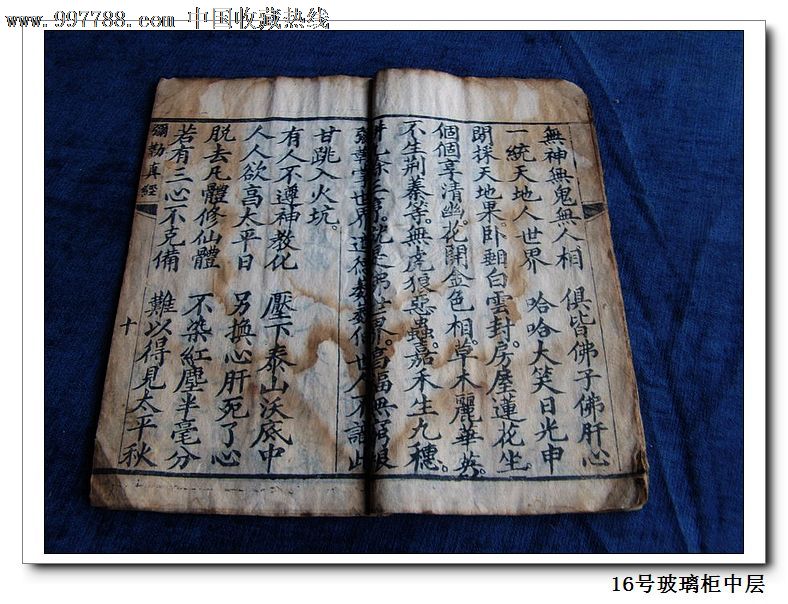 www.997788.com 中国收藏热线
無神無鬼無人相 俱皆佛子佛肝心
一統天地人世界 哈哈大笑日光申
閑採天地果。卧翱白雲封。房屋蓮花坐
個個享清幽。花開金色相。草木麗華英。
不生荆蓁等。無虎狼惡蟲。嘉禾生九穗。
世界 道德 世人不
甘跳入火坑。
有人不遵神教化 壓下泰山沃底中
人人欲高太平日 另換心肝死了心
脱去凡體修仙體 不染紅塵半毫分
若有三心不克備 難以得見太平秋
彌勒真經 十
16号玻璃柜中层